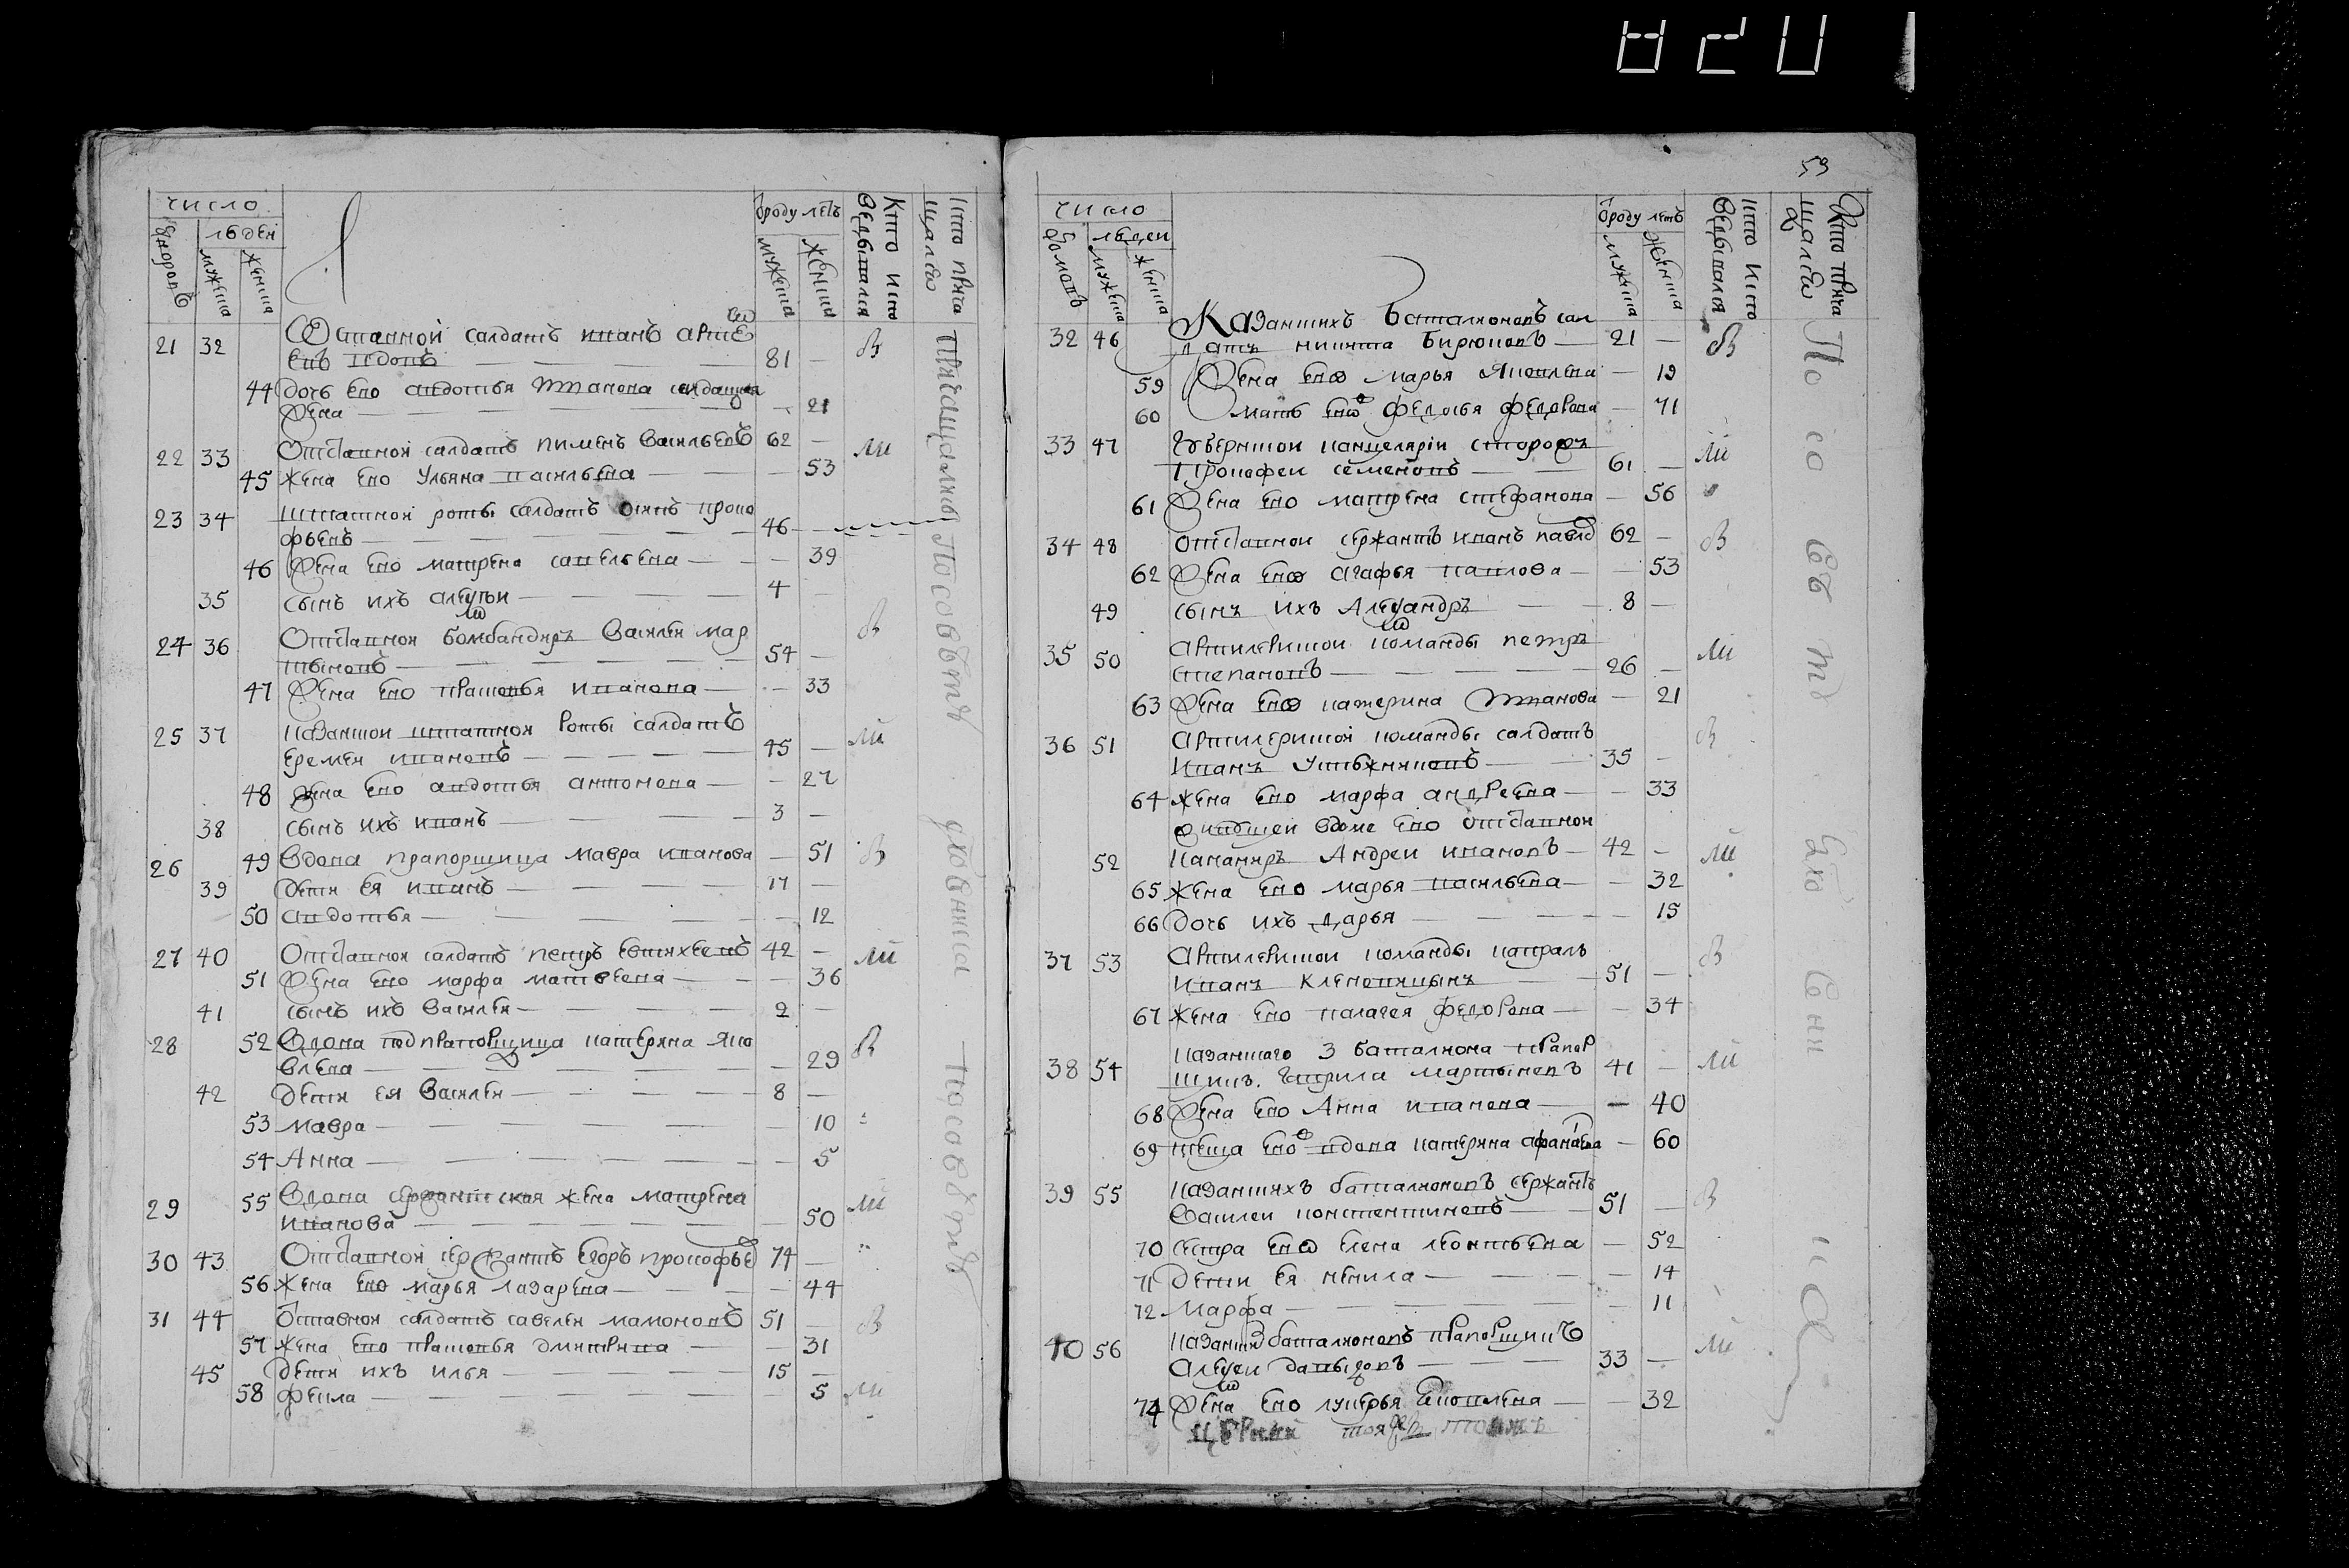 число
людеи
мужеска
женска
От роду летъ
мужеска
женска
21 32 Оставной салдатъ иванъ артеме
евъ вдовъ — 81 —
44 дочь ево авдотья иванова салдацкая
жена — — 21
22 33 Отставной салдатъ пименъ васильевъ 62 —
45 жена ево Ульяна васильева — 53
23 34 штатной роты салдатъ проко
фьевъ — 46 —
46 жена ево матрена савельева — 39
35 сынъ ихъ алексеи — 4 —
24 36 Отставной бомбандиръ Василеи мар
тыновъ — 54 —
47 жена ево прасковья иванова — 33
25 37 казанской штатной роты салдатъ
еремеи ивановъ — 45 —
48 жена ево авдотья антонова — 27
38 сынъ ихъ иванъ — 3 —
26 49 вдова прапорщица мавра иванова — 51
39 дети ея иванъ — 17 —
50 авдотья — 12
27 40 Отставной салдатъ петръ евтихеевъ 42 —
51 жена ево марфа матвеева — 36
41 сынъ ихъ Василеи — 2 —
28 52 Вдова подпрапорщица катерина яко
влева — 29
42 дети ея Василеи — 8 —
53 мавра — 10
54 Анна — 5
29 55 Вдова сержантская жена матрена
иванова — 50
30 43 Отставной сержантъ егоръ прокофьев 74 —
56 жена ево марья лазарева — 44
31 44 Отставной салдатъ савелеи мамоновъ 51 —
57 жена ево прасковья дмитрива — 31
45 дети ихъ илья — 15 —
58 фекла — 5
Кто исповедывался
кто прича
щался
Причащались По исповеди
духовника
По исповеди
53
число
домовъ
людеи
мужеска
женска
От роду летъ
мужеска
женска
32 46 Казанскихъ баталионовъ сал
датъ никита Бирюковъ — 21 —
59 Жена ево марья Яковлева — 19
60 мать ево федосья федорова — 71
33 47 Губернской канцелярiи сторожъ
Прокофеи семеновъ — 61 —
61 Жена ево матрена стефанова — 56
34 48 Отставной сержантъ иванъ павлов 62 —
62 Жена ево агафья павлова — 53
49 сынъ ихъ Александръ — 8 —
35 50 Артилериской команды петръ
степановъ — 26 —
63 Жена ево катерина иванова — 21
36 51 Артилериской команды салдатъ
Иванъ Устюжниковъ — 35 —
64 жена ево марфа андреева — 33
живущеи вдоме ево отставной
52 Канониръ Андреи ивановъ — 42 —
65 жена ево марья васильева — 32
66 дочь ихъ дарья — 15
37 53 Артилериской команды капралъ
Иванъ Клепоницынъ — 51 —
67 жена ево палагея федорова — 34
38 54 казанскаго 3 баталиона прапор
щикъ. Гаврила мартыновъ 41 —
68 Жена ево Анна иванова — 40
69 теща ево вдова катерина афанасева — 60
39 55 казанскихъ баталионовъ сержантъ
Василеи констентиновъ — 51 —
70 сестра ево елена леонтьева — 52
71 дети ея ненила — 14
72 Марфа — 11
40 56 казанских баталионовъ прапорщикъ
Алексеи давыдовъ — 33 —
74 Жена ево лукерья яковлева — 32
кто испо
ведывался
Кто прича
щался